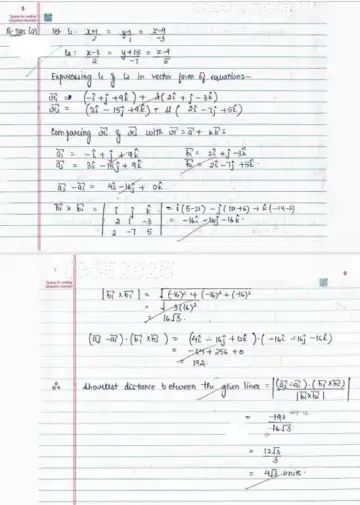 let L₁: x+1/2 = y-1/1 = z-9/-3
L₂: x-3/2 = y+15/-7 = z-9/5
Expressing L₁ & L₂ in vector form of equations—
r₁ ⇒ (-î + ĵ + 9k̂) + λ(2î + ĵ - 3k̂)
r₂ = (3î - 15ĵ + 9k̂) + μ(2î - 7ĵ + 5k̂)
Comparing r₁ & r₂ with r = a + λb :
a₁ = -î + ĵ + 9k̂ b₁ = 2î + ĵ - 3k̂
a₂ = 3î - 15ĵ + 9k̂ b₂ = 2î - 7ĵ + 5k̂
a₂ - a₁ = 4î - 16ĵ + 0k̂
b₁ × b₂ = | î ĵ k̂ | = î(5-21) - ĵ(10+6) + k̂(-14-2)
| 2 1 -3 | = -16î - 16ĵ - 16k̂
| 2 -7 5 |
|b₁ × b₂| = √(-16)² + (-16)² + (-16)²
= √3(16)²
= 16√3.
(a₂ - a₁) · (b₁ × b₂) = (4î - 16ĵ + 0k̂) · (-16î - 16ĵ - 16k̂)
= -64 + 256 + 0
= 192.
∴ Shortest distance between the given lines = |(a₂ - a₁) · (b₁ × b₂)/|b₁ × b₂||
= 192/16√3
= 12√3/3
= 4√3 units.